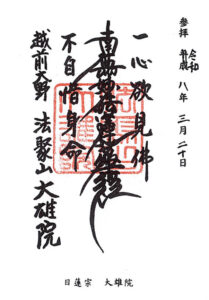 参拝 令和 平成 八年 三月二十日
一心欲見佛
南無妙法蓮華経
不自惜身命
越前大野 法聚山 大雄院
日蓮宗 大雄院